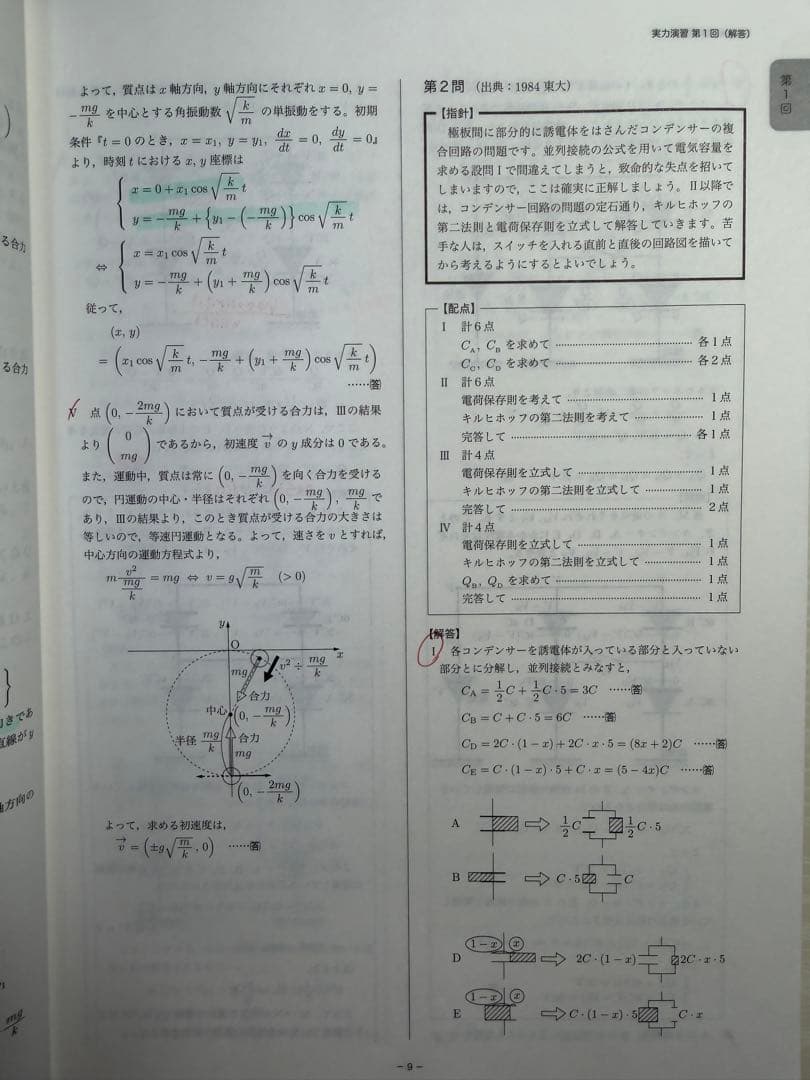 実力演習 第1回（解答）
第1回
る合力
る合力
向きであ
直線がy
軸方向の
mg/k
よって，質点はx軸方向，y軸方向にそれぞれx = 0, y =
-mg/k を中心とする角振動数√(k/m) の単振動をする。初期
条件『t = 0のとき，x = x₁, y = y₁, dx/dt = 0, dy/dt = 0』
より，時刻tにおけるx, y座標は
x = 0 + x₁ cos √(k/m) t
y = -mg/k + {y₁ - (-mg/k)} cos √(k/m) t
⇔ x = x₁ cos √(k/m) t
y = -mg/k + (y₁ + mg/k) cos √(k/m) t
従って，
(x, y)
= (x₁ cos √(k/m) t, -mg/k + (y₁ + mg/k) cos √(k/m) t)
……答
Ⅳ 点(0, -2mg/k)において質点が受ける合力は，Ⅲの結果
より (0 mg) であるから，初速度 v→ のy成分は0である。
また，運動中，質点は常に(0, -mg/k)を向く合力を受ける
ので，円運動の中心・半径はそれぞれ(0, -mg/k), mg/k で
あり，Ⅲの結果より，このとき質点が受ける合力の大きさは
等しいので，等速円運動となる。よって，速さをvとすれば，
中心方向の運動方程式より，
m v²/(mg/k) = mg ⇔ v = g√(m/k) (>0)
y
O
x
mg
v² ÷ mg/k
合力
中心
(0, -mg/k)
半径 mg/k
合力
mg
(0, -2mg/k)
よって，求める初速度は，
v→ = (±g√(m/k), 0) ……答
第2問 （出典：1984 東大）
【指針】
極板間に部分的に誘電体をはさんだコンデンサーの複
合回路の問題です。並列接続の公式を用いて電気容量を
求める設問Ⅰで間違えてしまうと，致命的な失点を招いて
しまいますので，ここは確実に正解しましょう。Ⅱ以降で
は，コンデンサー回路の問題の定石通り，キルヒホッフの
第二法則と電荷保存則を立式して解答していきます。苦
手な人は，スイッチを入れる直前と直後の回路図を描いて
から考えるようにするとよいでしょう。
【配点】
Ⅰ 計6点
C_A, C_B を求めて …… 各1点
C_C, C_D を求めて …… 各2点
Ⅱ 計6点
電荷保存則を考えて …… 1点
キルヒホッフの第二法則を考えて …… 1点
完答して …… 各1点
Ⅲ 計4点
電荷保存則を立式して …… 1点
キルヒホッフの第二法則を立式して …… 1点
完答して …… 2点
Ⅳ 計4点
電荷保存則を立式して …… 1点
キルヒホッフの第二法則を立式して …… 1点
Q_B, Q_D を求めて …… 1点
完答して …… 1点
【解答】
Ⅰ 各コンデンサーを誘電体が入っている部分と入っていない
部分とに分解し，並列接続とみなすと，
C_A = 1/2 C + 1/2 C · 5 = 3C ……答
C_B = C + C · 5 = 6C ……答
C_D = 2C · (1 - x) + 2C · x · 5 = (8x + 2)C ……答
C_E = C · (1 - x) · 5 + C · x = (5 - 4x)C ……答
A ⇨ 1/2 C 1/2 C · 5
B ⇨ C · 5 C
D 1-x x ⇨ 2C · (1 - x) 2C · x · 5
E 1-x x ⇨ C · (1 - x) · 5 C · x
− 9 −